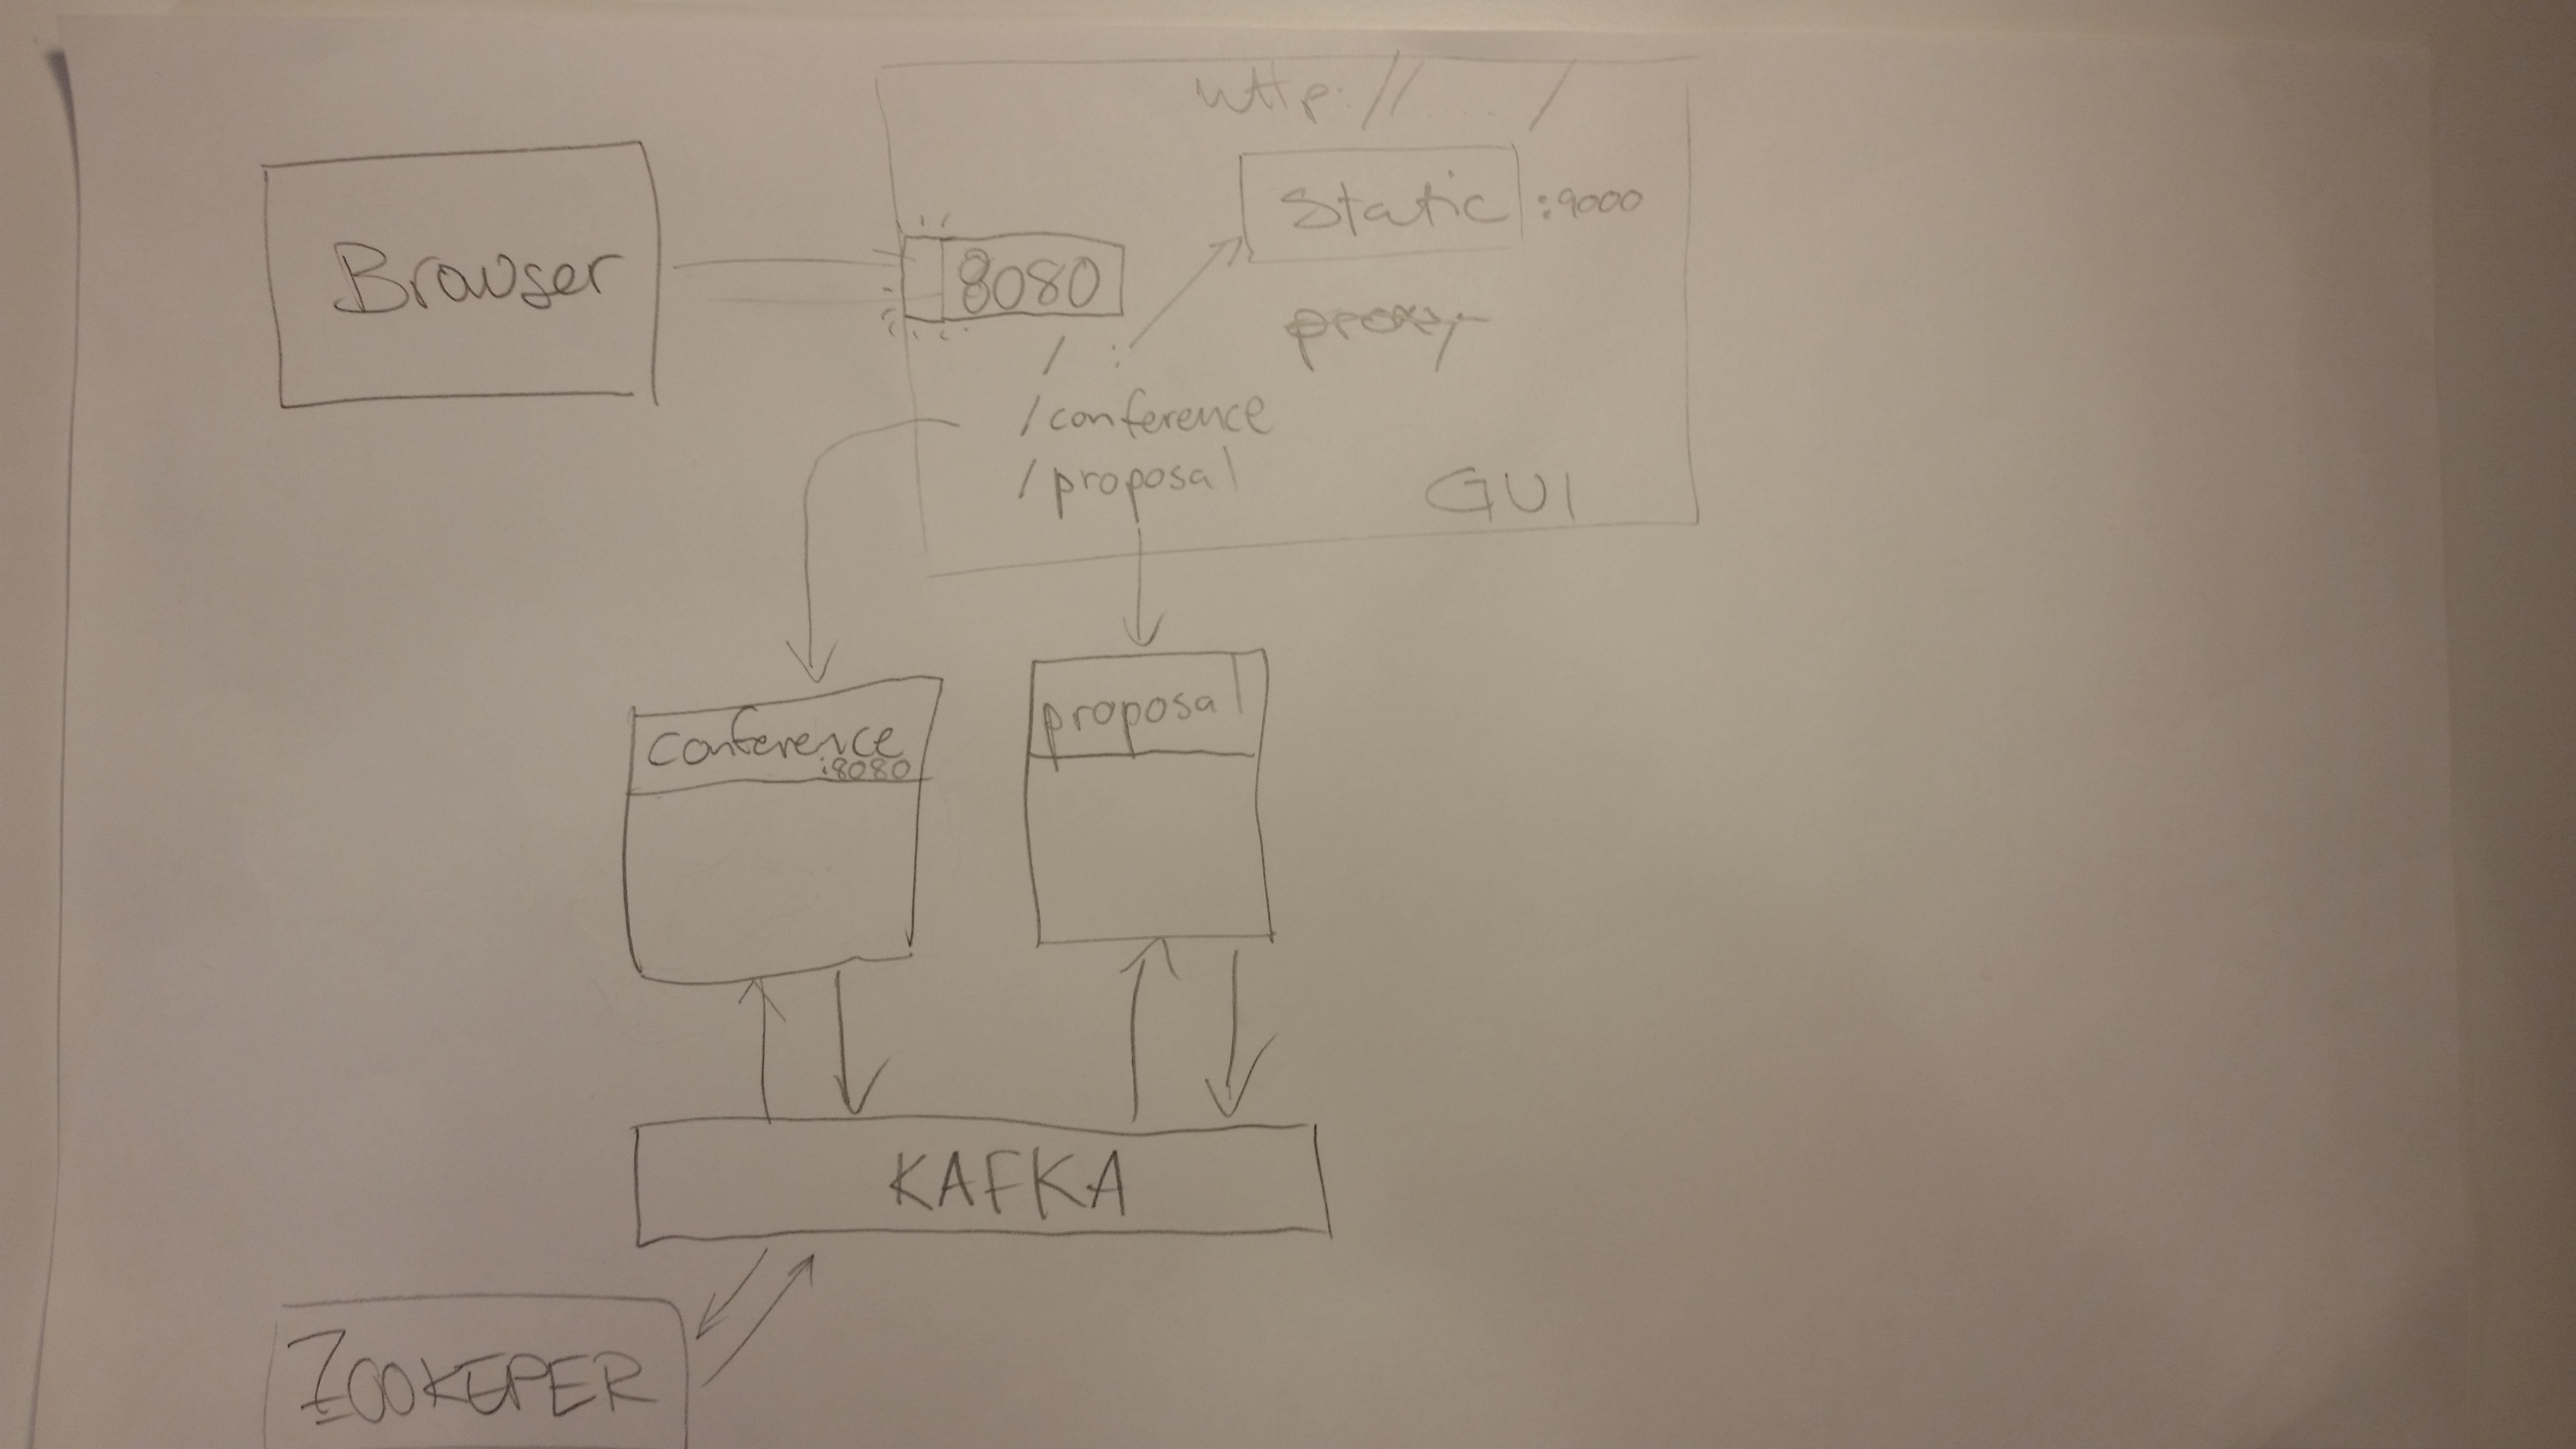 http://..../
Browser
8080
Static :9000
proxy
/ :
/conference
/proposal
GUI
conference
:8080
proposal
KAFKA
ZOOKEPER